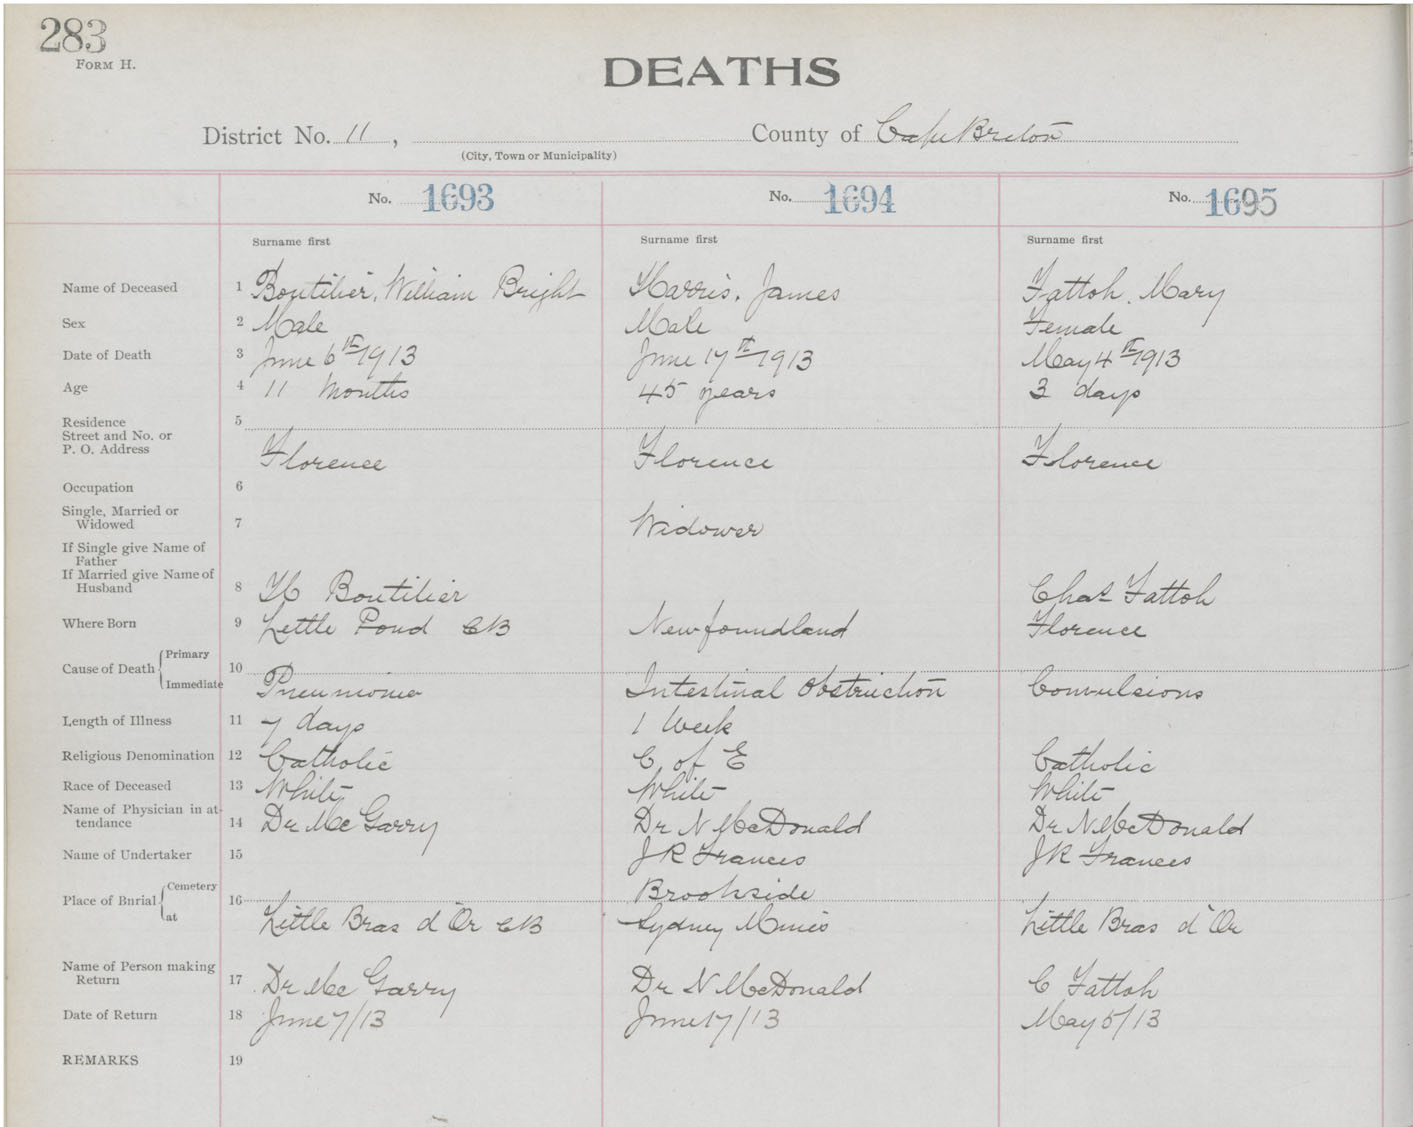 283
FORM H.
DEATHS
District No. 11, County of Cape Breton
(City, Town or Municipality)
No. 1693 No. 1694 No. 1695
Surname first Surname first Surname first
Name of Deceased 1 Boutilier, William Bright Harris, James Fattoh, Mary
Sex 2 Male Male Female
Date of Death 3 June 6th 1913 June 17th 1913 May 4th 1913
Age 4 11 months 45 years 3 days
Residence 5
Street and No. or
P. O. Address Florence Florence Florence
Occupation 6
Single, Married or
Widowed 7 Widower
If Single give Name of
Father
If Married give Name of
Husband 8 H Boutilier Chas Fattoh
Where Born 9 Little Pond CB Newfoundland Florence
Cause of Death Primary 10
Immediate Pneumonia Intestinal Obstruction Convulsions
Length of Illness 11 7 days 1 Week
Religious Denomination 12 Catholic C of E Catholic
Race of Deceased 13 White White White
Name of Physician in at-
tendance 14 Dr McGarry Dr N McDonald Dr N McDonald
Name of Undertaker 15 JR Frances JR Frances
Place of Burial Cemetery 16 Brookside
at Little Bras d'Or CB Sydney Mines Little Bras d'Or
Name of Person making
Return 17 Dr McGarry Dr N McDonald C Fattoh
Date of Return 18 June 7/13 June 17/13 May 5/13
REMARKS 19